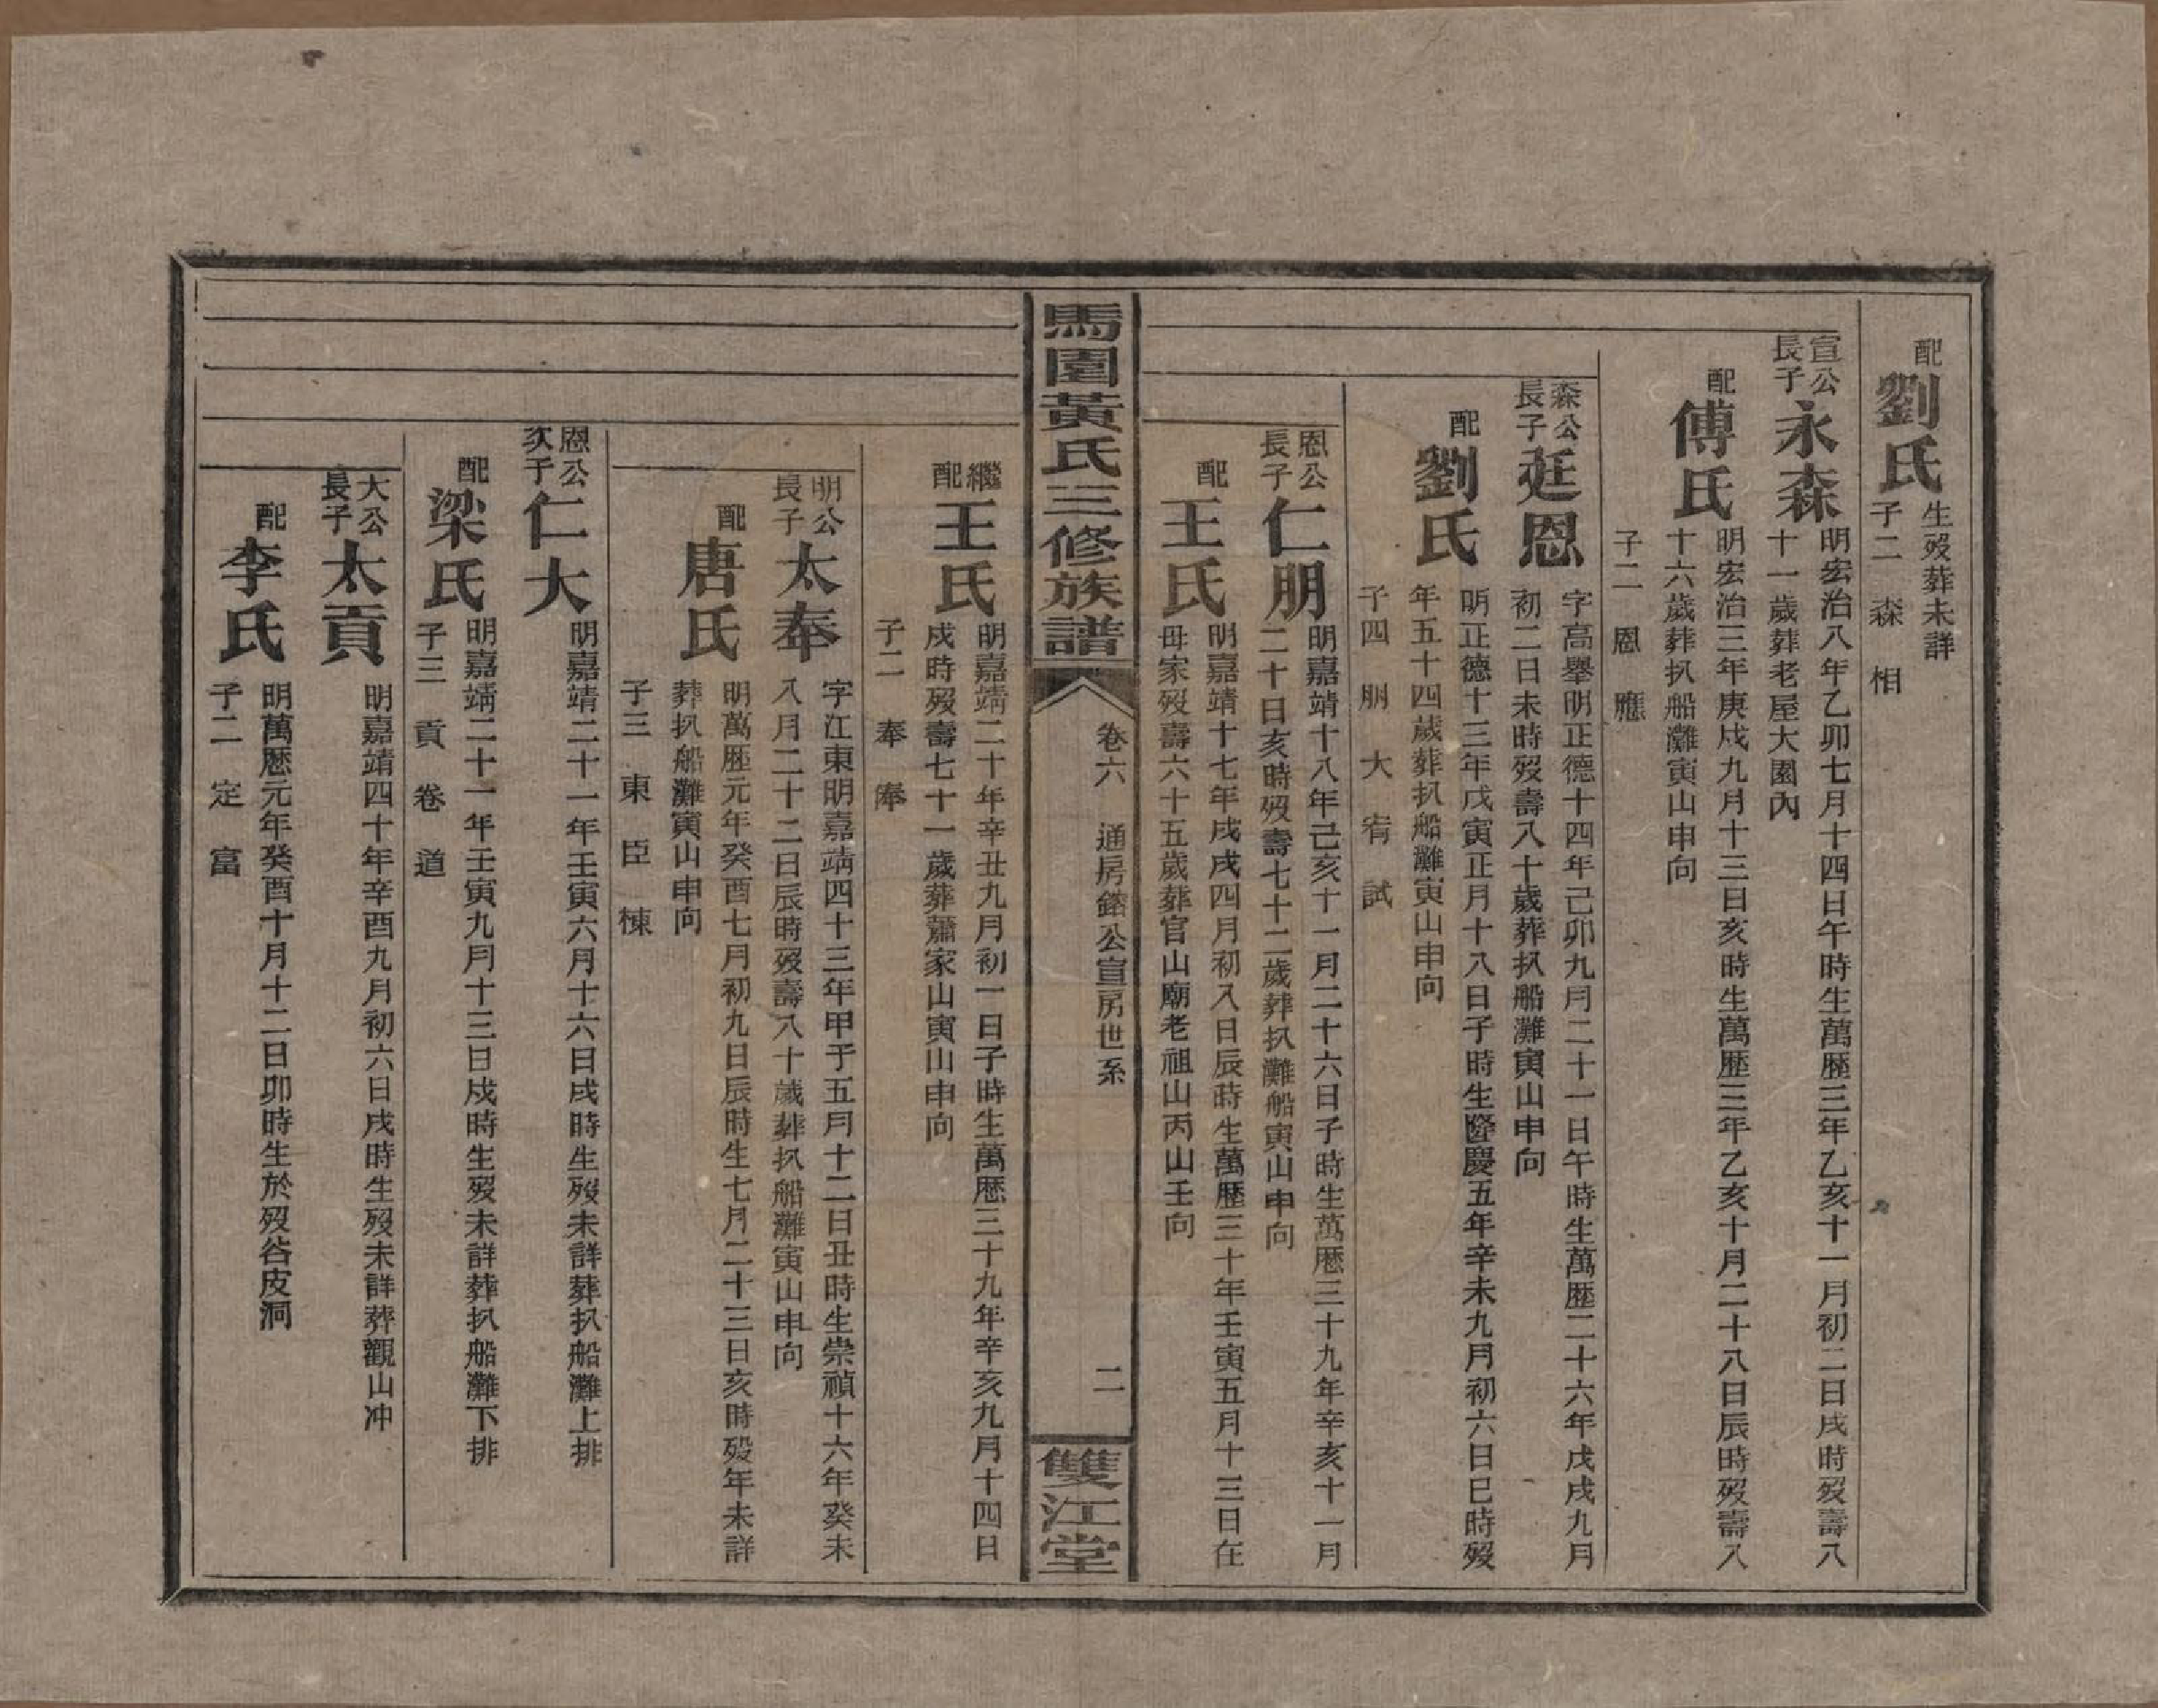 配劉氏
生歿葬未詳
子二 森 相
宣公長子永森
明宏治八年乙卯七月十四日午時生萬歷三年乙亥十一月初二日戌時歿壽八
十一歲葬老屋大園內
配傅氏
明宏治三年庚戌九月十三日亥時生萬歷三年乙亥十月二十八日辰時歿壽八
十六歲葬扒船灘寅山申向
子二 恩 應
森公長子廷恩
字高舉明正德十四年己卯九月二十一日午時生萬歷二十六年戊戌九月
初二日未時歿壽八十歲葬扒船灘寅山申向
配劉氏
明正德十三年戊寅正月十八日子時生隆慶五年辛未九月初六日巳時歿
年五十四歲葬扒船灘寅山申向
子四 朋 大 宥 試
恩公長子仁朋
明嘉靖十八年己亥十一月二十六日子時生萬歷三十九年辛亥十一月
二十日亥時歿壽七十二歲葬扒灘船寅山申向
配王氏
明嘉靖十七年戊戌四月初八日辰時生萬歷三十年壬寅五月十三日在
母家歿壽六十五歲葬官山廟老祖山丙山壬向
馬園黃氏三修族譜
卷六 通房鎔公宣房世系
二
雙江堂
繼配王氏
明嘉靖二十年辛丑九月初一日子時生萬歷三十九年辛亥九月十四日
戌時歿壽七十一歲葬蕭家山寅山申向
子二 奉 俸
明公長子太奉
字江東明嘉靖四十三年甲子五月十二日丑時生崇禎十六年癸未
八月二十二日辰時歿壽八十歲葬扒船灘寅山申向
配唐氏
明萬歷元年癸酉七月初九日辰時生七月二十三日亥時歿年未詳
葬扒船灘寅山申向
子三 東 臣 棟
恩公次子仁大
明嘉靖二十一年壬寅六月十六日戌時生歿未詳葬扒船灘上排
配梁氏
明嘉靖二十一年壬寅九月十三日戌時生歿未詳葬扒船灘下排
子三 貢 卷 道
大公長子太貢
明嘉靖四十年辛酉九月初六日戌時生歿未詳葬觀山冲
配李氏
明萬歷元年癸酉十月十二日卯時生於歿峇皮洞
子二 定 富